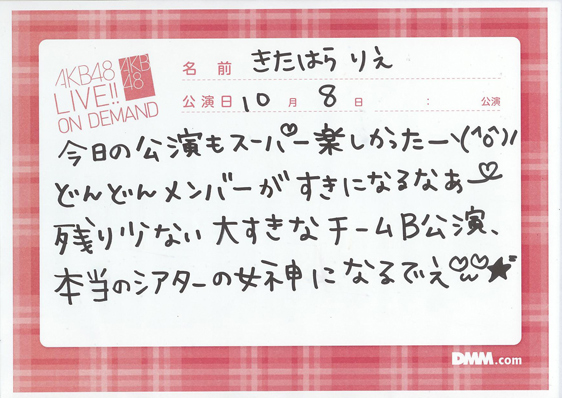 AKB48
LIVE!!
ON DEMAND
AKB
48
名 前 きたはら りえ
公演日 10 月 8 日 : 公演
今日の公演もスーパー楽しかったー\(^o^)/
どんどんメンバーがすきになるなあ♡
残り少ない大すきなチームB公演、
本当のシアターの女神になるでえ♡ω♡★
DMM.com